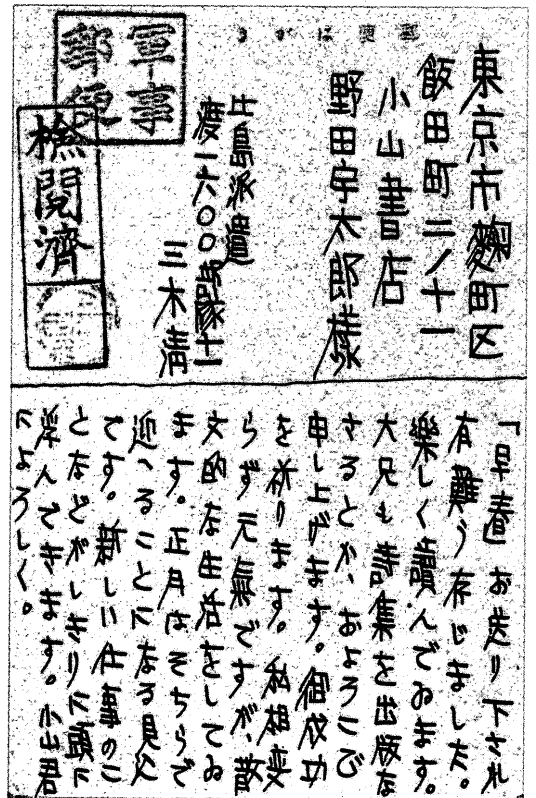 郵便はがき
軍事
郵便
検閲濟
東京市麴町区
飯田町二ノ十一
小山書店
野田宇太郎様
比島派遣
渡一六〇〇部隊十一
三木清
「早春」お送り下され
有難う存じました。
楽しく讀んでゐます。
大兄も詩集を出版な
さるとか、およろこび
申し上げます。御成功
を祈ります。私相変
らず元氣ですが、散
文的な生活をしてゐ
ます。正月はそちらで
迎へることになる見込
です。新しい仕事のこ
となどがしきりに頭に
浮んできます。小山君
によろしく。